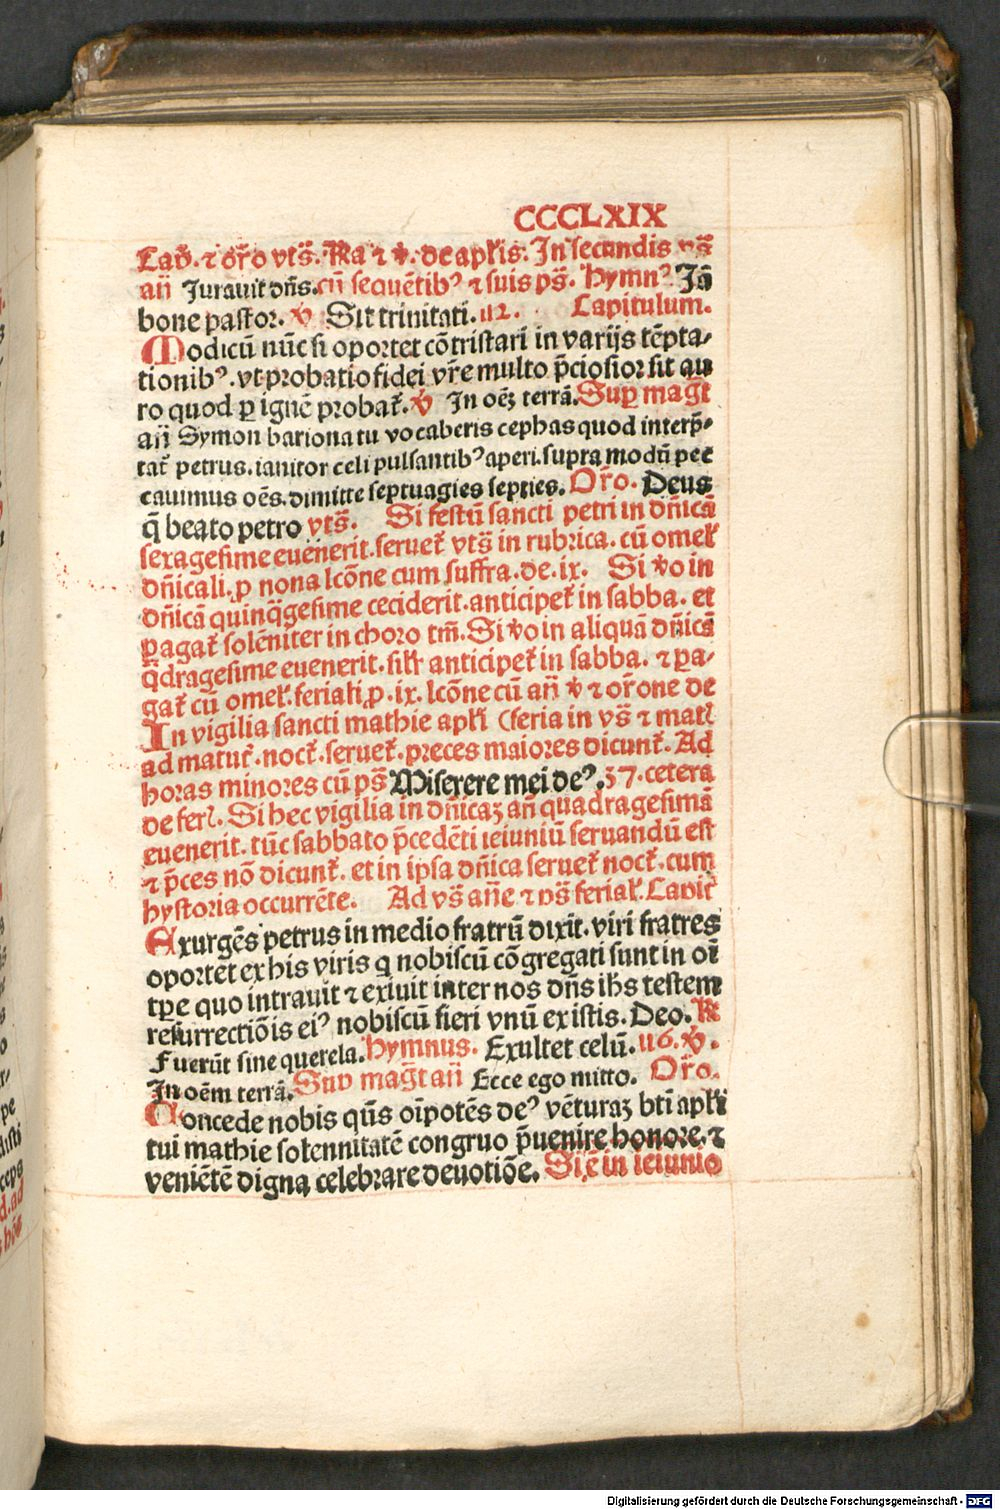 CCCLXIX
Cap̃. ⁊ oŕo vts̃. ℟a ⁊ ℣. de apl̃is. In secundis vs̃
añ Jurauit dñs. cũ sequẽtibꝰ ⁊ suis ps̃. Hymnꝰ Jã
bone pastor. ℣ Sit trinitati. 112. Capitulum.
Modicũ nũc si oportet cõtristari in varijs tẽpta⸗
tionibꝰ. vt probatio fidei vr̃e multo p̃ciosior sit au
ro quod ꝑ ignẽ probat̃. ℣ In oẽʒ terrã. Suꝑ mag̃t
añ Symon bariona tu vocaberis cephas quod interp̃⸗
tat̃ petrus. ianitor celi pulsantibꝰ aperi. supra modũ pec
cauimus oẽs. dimitte septuagies septies. Oŕo. Deus
q̃ beato petro vts̃. Si festũ sancti petri in dñicã
sexagesime euenerit. seruet̃ vts̃ in rubrica. cũ omel̃
dñicali. ꝓ nona lcõne cum suffra. de. ix. Si ꝟo in
dñicã quinq̃gesime ceciderit. anticipet̃ in sabba. et
ꝑagat̃ solẽniter in choro tm̃. Si ꝟo in aliqua dñicã
q̃dragesime euenerit. sil̃r anticipet̃ in sabba. ⁊ ꝑa⸗
gat̃ cũ omel̃. feriali ꝓ. ix. lcõne cũ añ ℣ ⁊ oŕone de
In vigilia sancti mathie apl̃i (feria in vs̃ ⁊ mat̃
ad matut̃. noct̃. seruet̃. preces maiores dicunt̃. Ad
horas minores cũ ps̃ Miserere mei deꝰ. 37. cetera
de fer̃. Si hec vigilia in dñicaʒ añ quadragesimã
euenerit. tũc sabbato p̃cedẽti ieiuniũ seruandũ est
⁊ p̃ces nõ dicunt̃. et in ipsa dñica seruet̃ noct̃. cum
hystoria occurrẽte. Ad vs̃ añe ⁊ ps̃ ferial̃. Capit̃
Exurgẽs petrus in medio fratrũ dixit. viri fratres
oportet ex his viris q̃ nobiscũ cõgregati sunt in oĩ
tꝑe quo intrauit ⁊ exiuit inter nos dñs ih̃s testem
resurrectiõis eiꝰ nobiscũ fieri vnũ ex istis. Deo. ℟
Fuerũt sine querela. Hymnus. Exultet celũ. 116. ℣.
In oẽm terrã. Suꝑ mag̃t añ Ecce ego mitto. Oŕo.
Concede nobis q̃s oĩpotẽs deꝰ vẽturaʒ bt̃i apl̃i
tui mathie solennitatẽ congruo p̃uenire honore. ⁊
veniẽtẽ digna celebrare deuotiõe. Si ẽ in ieiunio
Digitalisierung gefördert durch die Deutsche Forschungsgemeinschaft - DFG